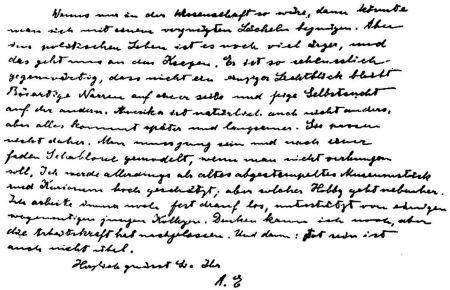 Wenns nur in der Wissenschaft so wäre, dann könnte
man sich mit einem vergnügten Lächeln begnügen. Aber
im politischen Leben ist es noch viel ärger, und
das geht uns an den Kragen. Es ist so scheusslich
gegenwärtig, dass nicht ein einziger Lichtblick bleibt
Bösartige Narren auf einer Seite und feige Selbstsucht
auf der andern. Amerika ist natürlich auch nicht anders,
aber alles kommt später und langsamer. Sie passen
nicht daher. Man muss jung sein und nach einer
faden Schablone gemodelt, wenn man nicht verhungern
soll. Ich werde allerdings als altes abgestempeltes Museumsstück
und Kuriosum hoch geschätzt; aber solches Hobby geht nebenher.
Ich arbeite immer noch fest drauf los, unterstützt von einigen
wagemutigen jungen Kollegen. Denken kann ich noch, aber
die Arbeitskraft hat nachgelassen. Und dann: tot sein ist
auch nicht übel.
Herzlich grüsst Sie Ihr
A. E